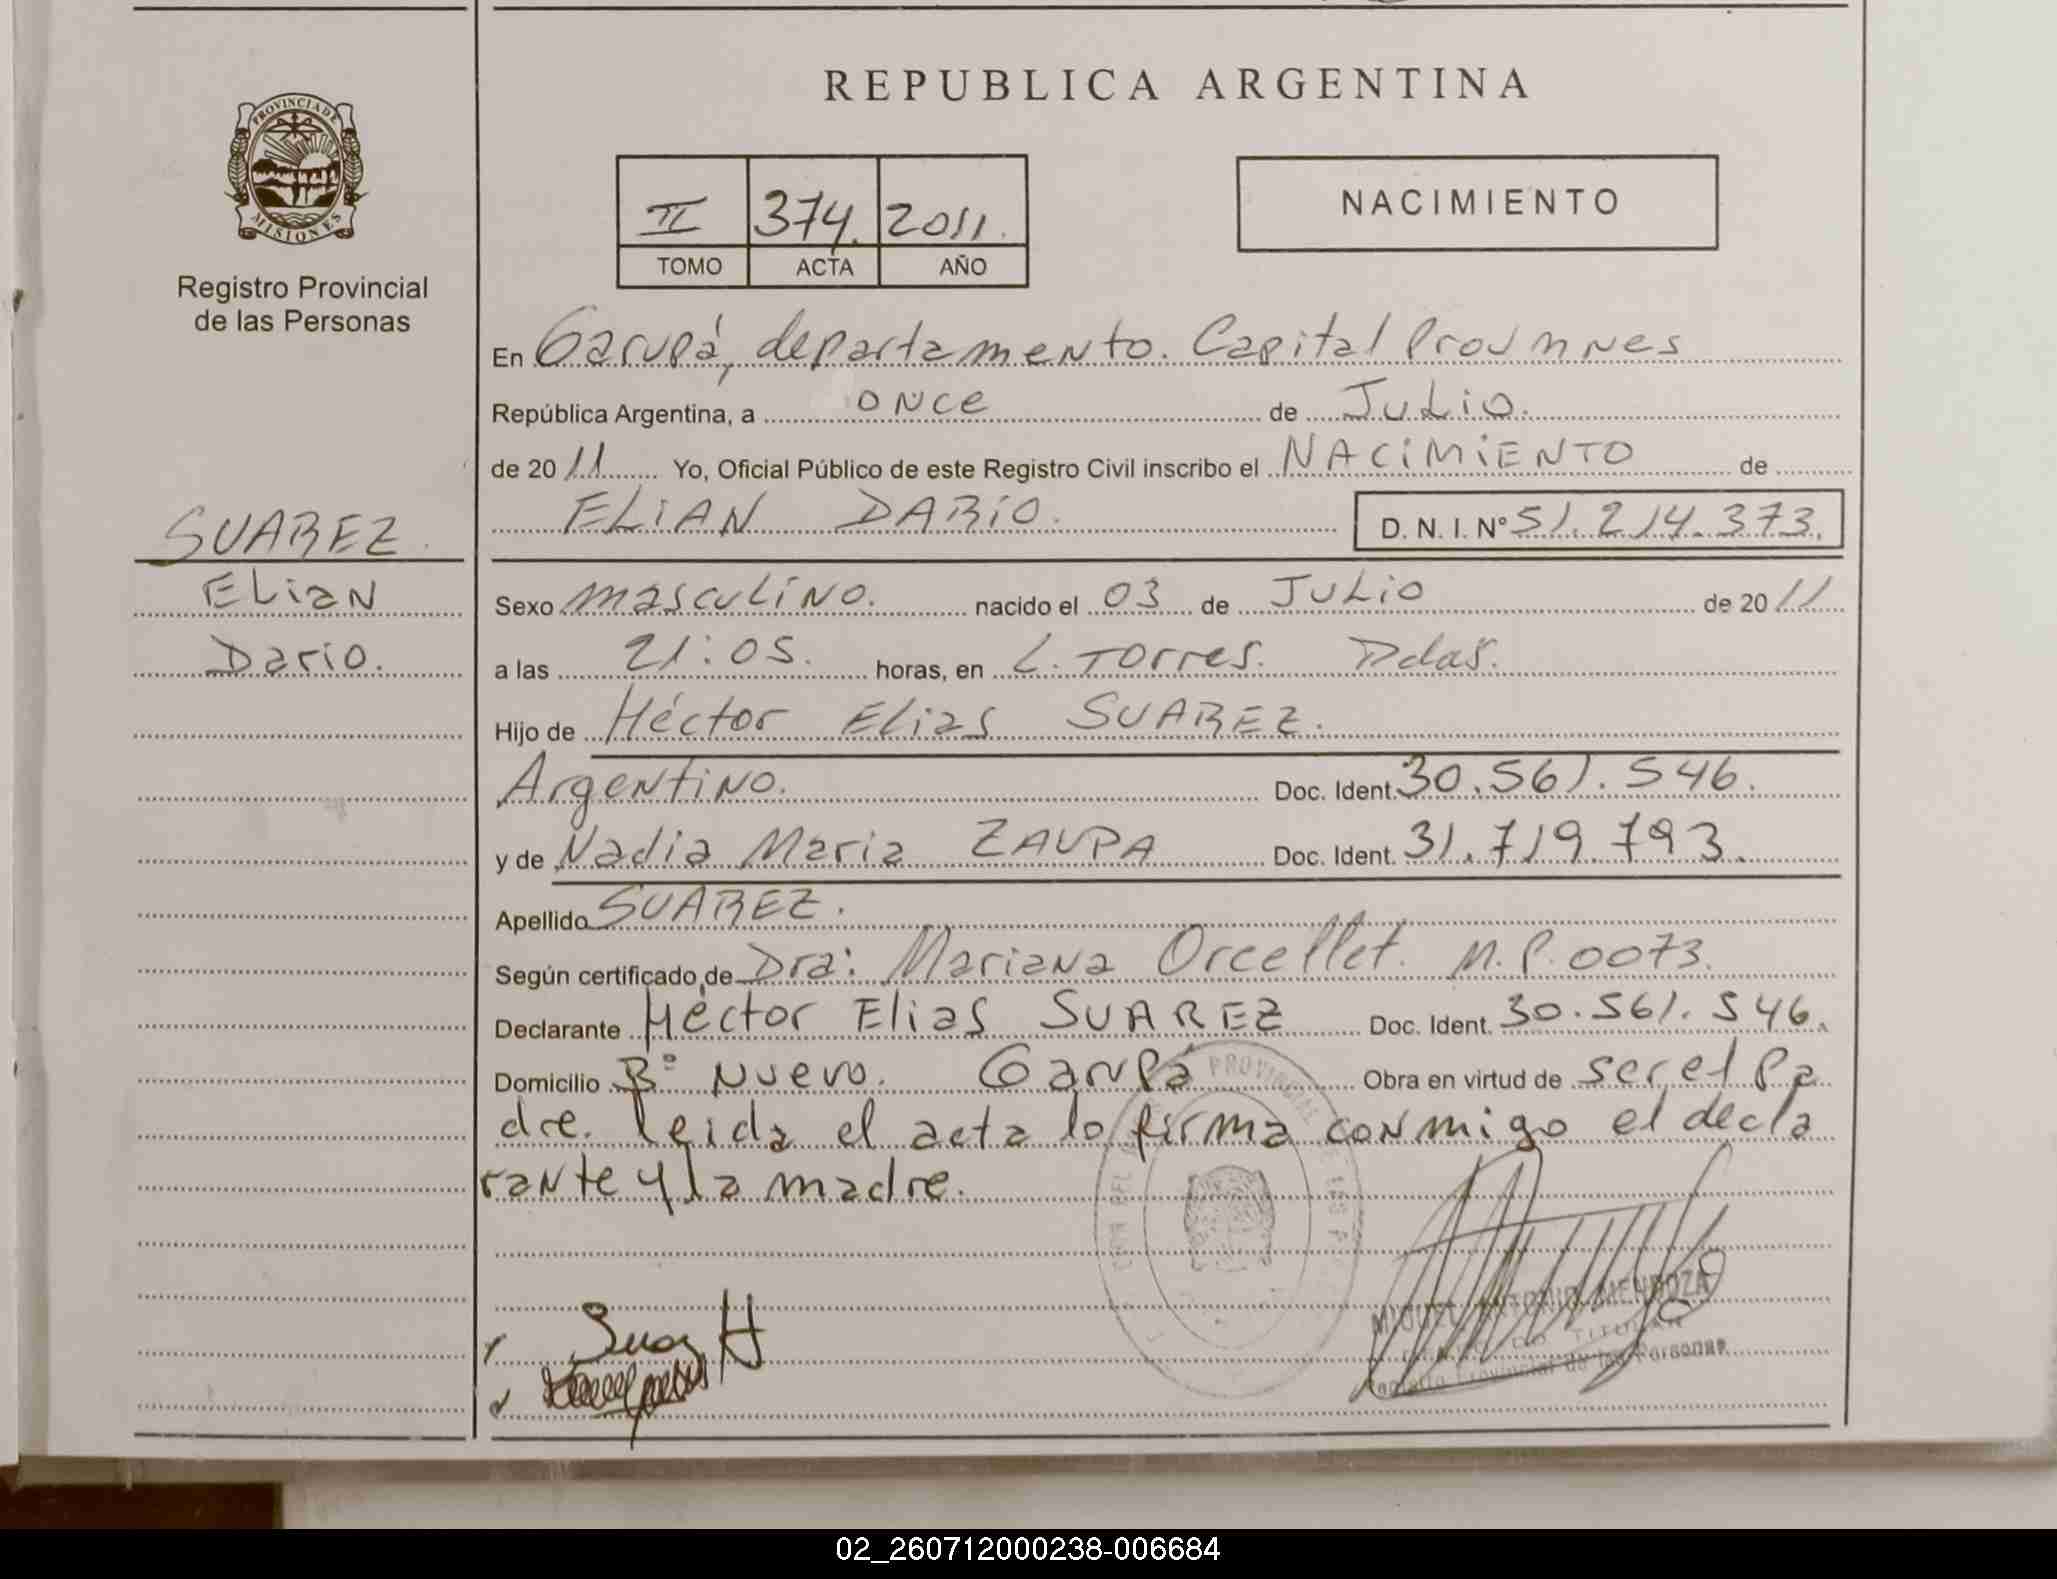 REPUBLICA ARGENTINA
PROVINCIA DE
MISIONES
Registro Provincial
de las Personas
II 374. 2011.
TOMO ACTA AÑO
NACIMIENTO
En Garupá, departamento. Capital Prov mnes
República Argentina, a once de Julio.
de 2011 Yo, Oficial Público de este Registro Civil inscribo el NACIMIENTO de
ELIAN DARIO. D. N. I. Nº 51.214.373.
SUAREZ.
Elian
Dario.
Sexo masculino. nacido el 03 de Julio de 2011
a las 21:05. horas, en L. Torres. Pdas.
Hijo de Héctor Elias SUAREZ.
Argentino. Doc. Ident. 30.561.546.
y de Nadia Maria ZAUPA Doc. Ident. 31.719.793.
Apellido SUAREZ.
Según certificado de Dra: Mariana Orcellet. M.P. 0073.
Declarante Héctor Elias SUAREZ Doc. Ident. 30.561.546.
Domicilio Bº Nuevo. Garupá Obra en virtud de ser el Pa
dre. leida el acta lo firma conmigo el decla
rante y la madre.
MIGUEL ANTONIO MENDOZA
TITULAR
Registro Provincial de las Personas
02_260712000238-006684